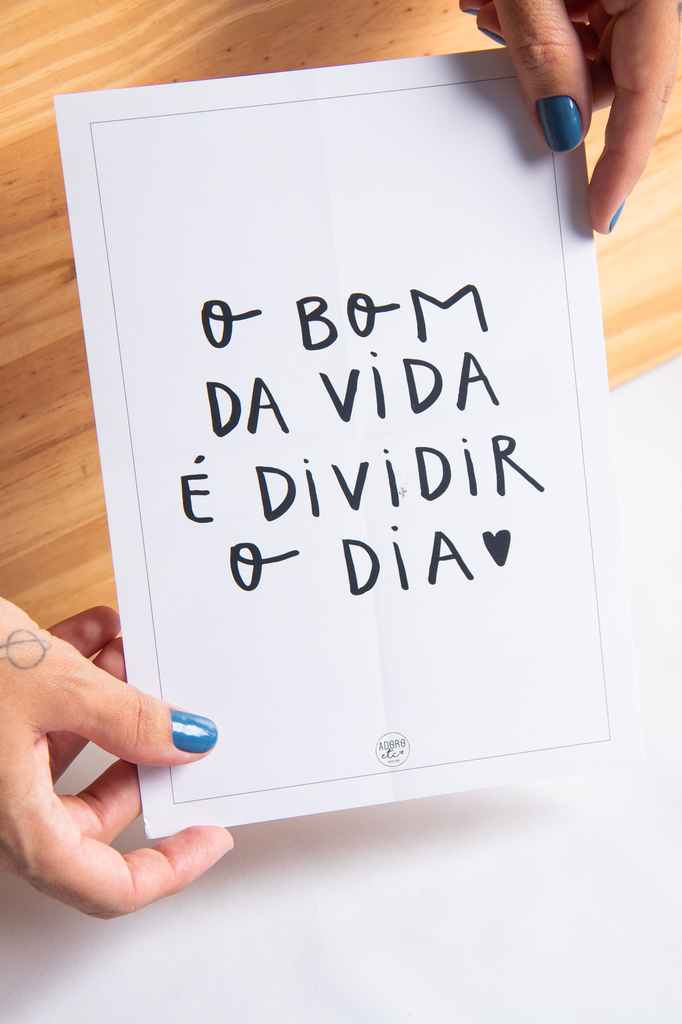 O BOM
DA VIDA
É DIVIDIR
O DIA♥
ADORO
etc